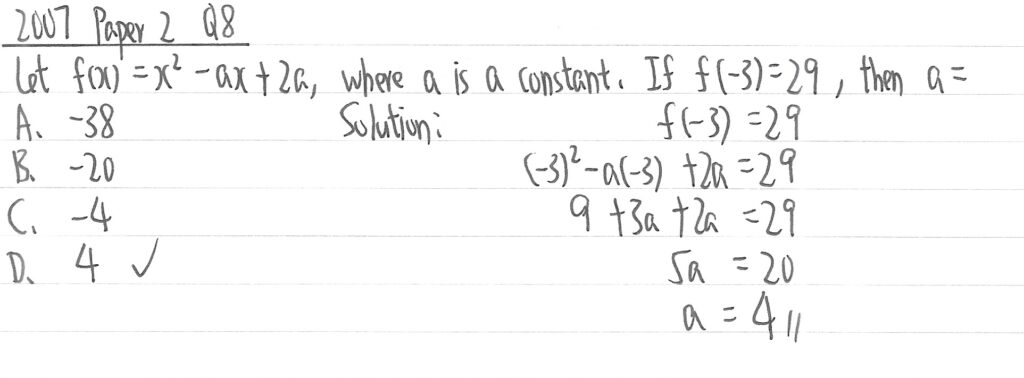 2007 Paper 2 Q8
Let f(x) = x² - ax + 2a, where a is a constant. If f(-3) = 29, then a =
A. -38 Solution: f(-3) = 29
B. -20 (-3)² - a(-3) + 2a = 29
C. -4 9 + 3a + 2a = 29
D. 4 ✓ 5a = 20
a = 4 //